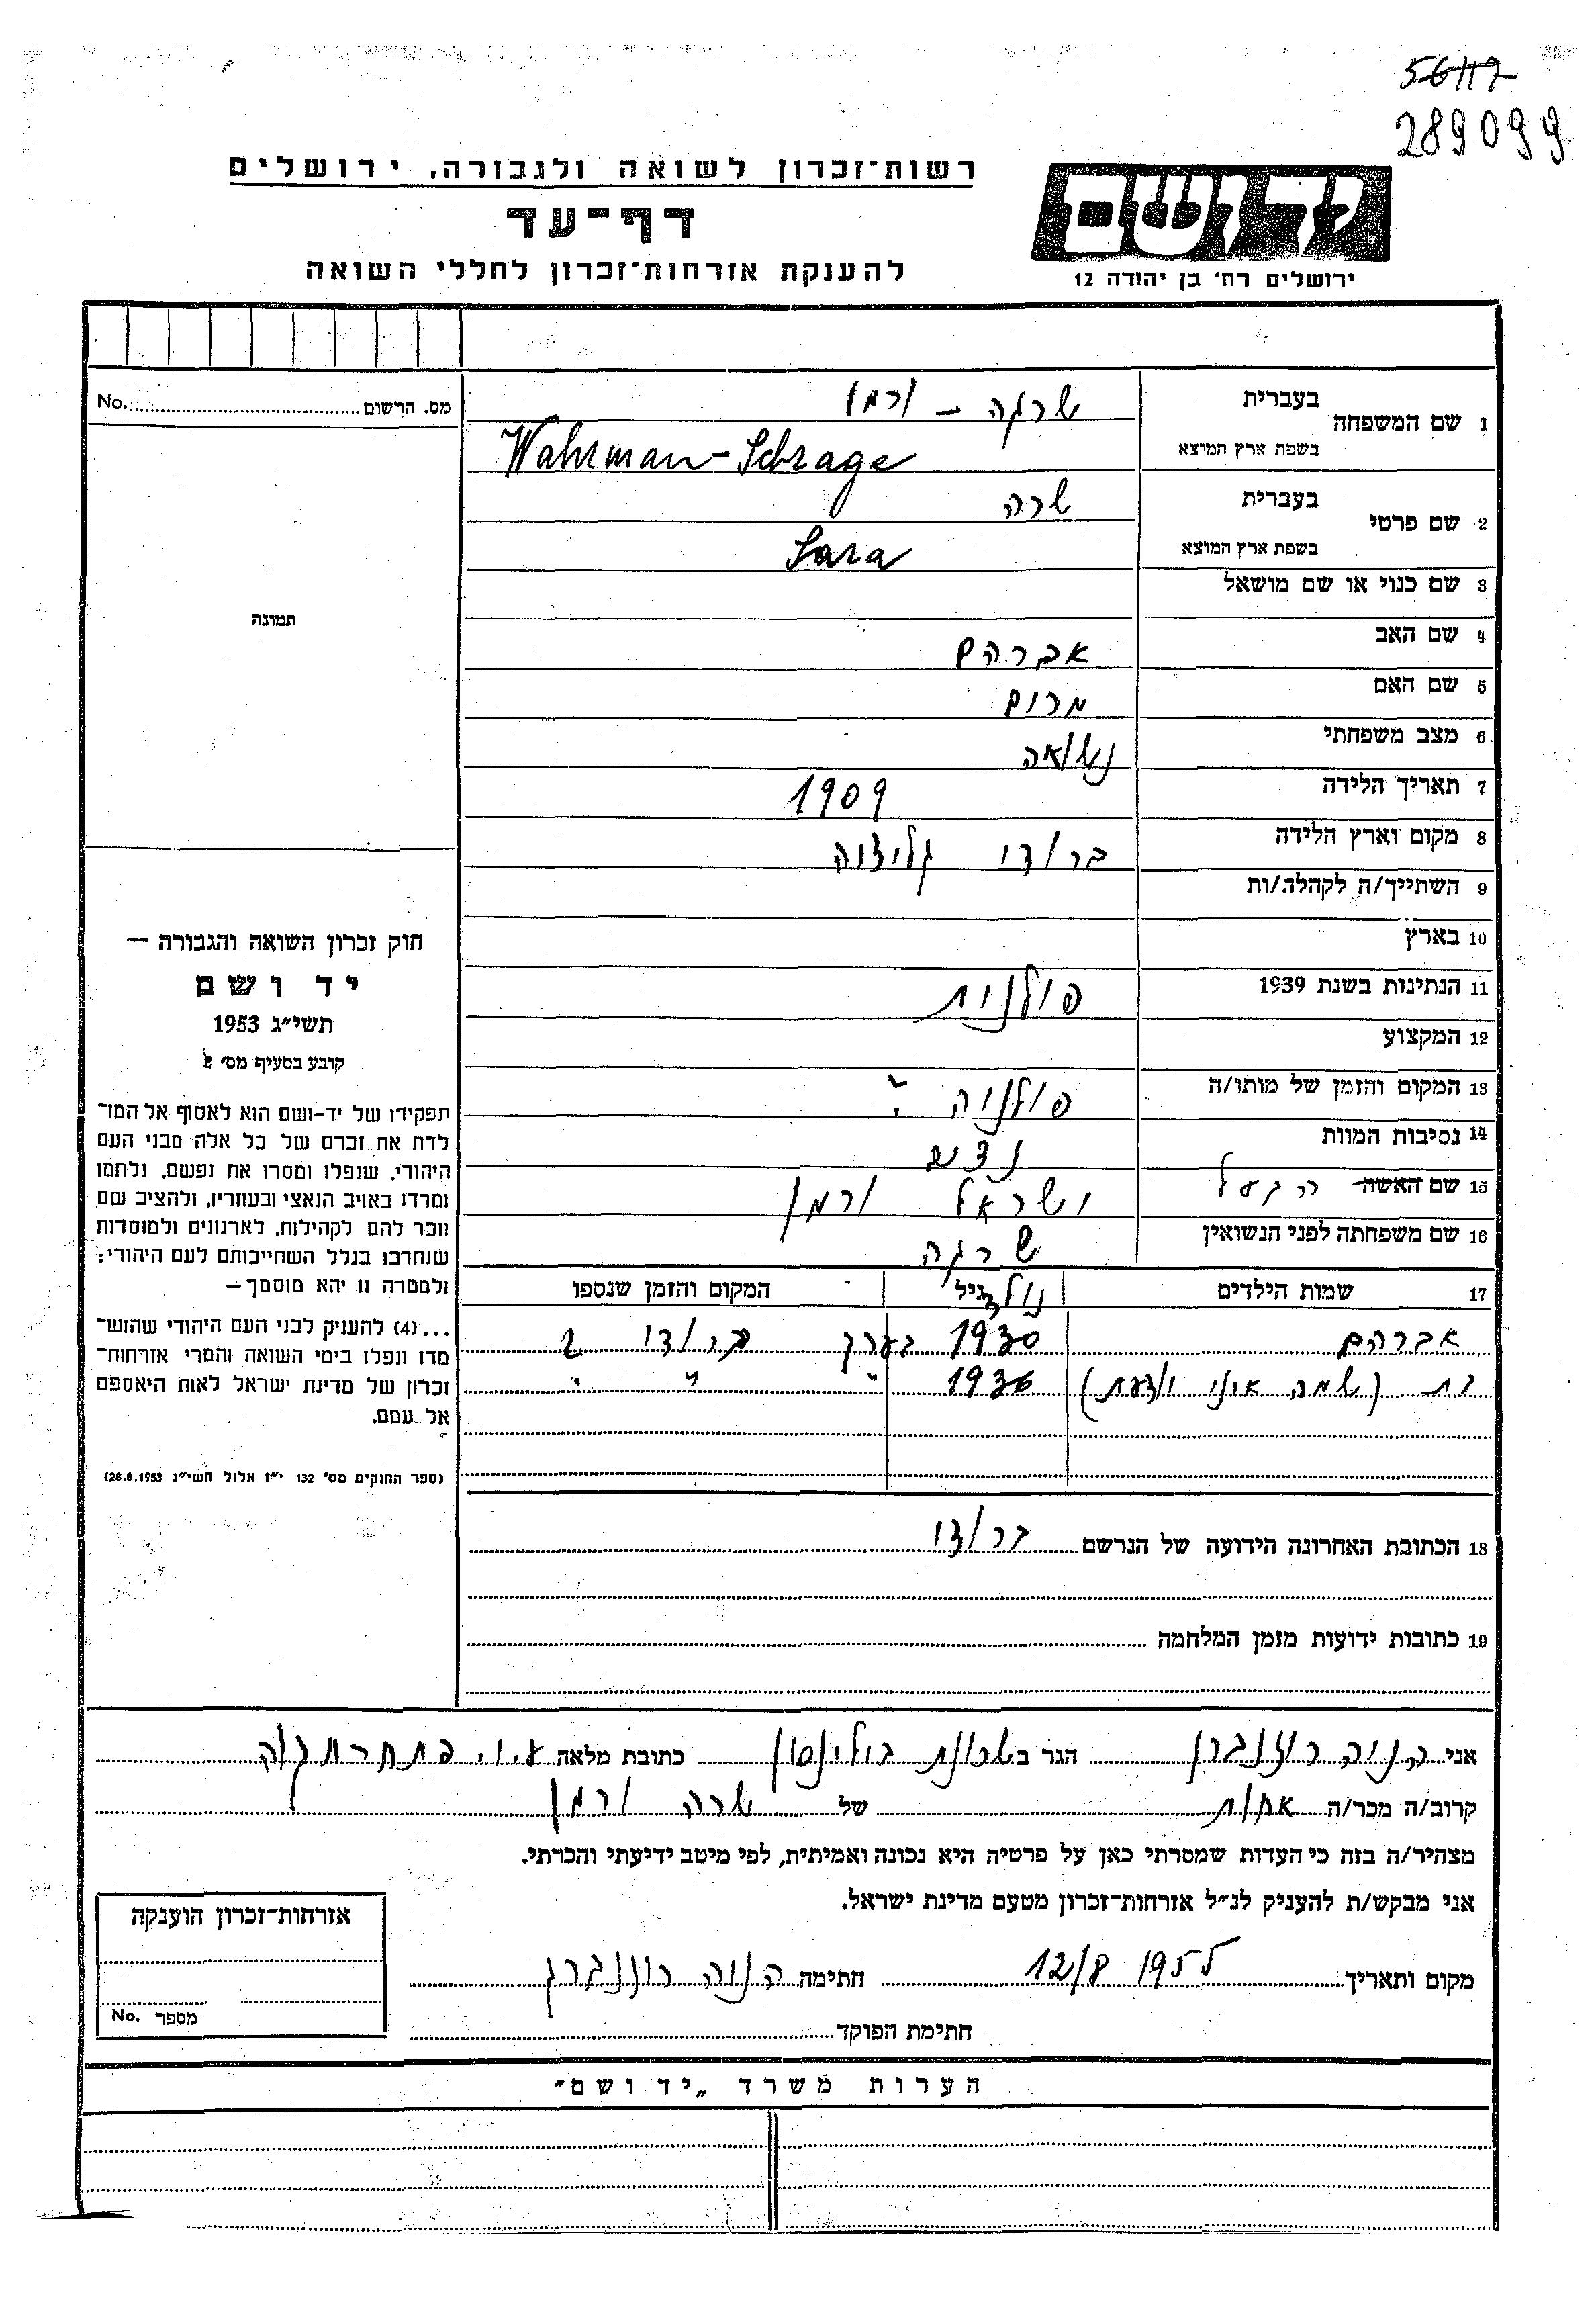 56117
289099
רשות־זכרון לשואה ולגבורה, ירושלים
דף־עד
להענקת אזרחות־זכרון לחללי השואה
יד ושם
ירושלים רח׳ בן יהודה 12
מס. הרשום No.
תמונה
1 שם המשפחה בעברית שרגה – ורמן
בשפת ארץ המוצא Wahrman-Schrage
2 שם פרטי בעברית שרה
בשפת ארץ המוצא Sara
3 שם כנוי או שם מושאל
4 שם האב אברהם
5 שם האם מרים
6 מצב משפחתי נשואה
7 תאריך הלידה 1909
8 מקום וארץ הלידה ברודי גליציה
9 השתייך/ה לקהלה/ות
10 בארץ
11 הנתינות בשנת 1939 פולנית
12 המקצוע
13 המקום והזמן של מותו/ה פולניה ?
14 נסיבות המוות
15 שם האשה הבעל ישראל ורמן
16 שם משפחתה לפני הנשואין שרגה
17 שמות הילדים גיל נולד המקום והזמן שנספו
אברהם 1930 בערך ברודי ?
בת (שמה איני יודעת) 1936 " " "
18 הכתובת האחרונה הידועה של הנרשם ברודי
19 כתובות ידועות מזמן המלחמה
חוק זכרון השואה והגבורה —
יד ושם
תשי״ג 1953
קובע בסעיף מס׳ 2
תפקידו של יד-ושם הוא לאסוף אל המו־
לדת את זכרם של כל אלה מבני העם
היהודי, שנפלו ומסרו את נפשם, נלחמו
ומרדו באויב הנאצי ובעוזריו, ולהציב שם
וזכר להם לקהילות, לארגונים ולמוסדות
שנחרבו בגלל השתייכותם לעם היהודי;
ולמטרה זו יהא מוסמך—
...(4) להעניק לבני העם היהודי שהוש־
מדו ונפלו בימי השואה והמרי אזרחות־
זכרון של מדינת ישראל לאות היאספם
אל עמם.
(ספר החוקים מס׳ 132 י״ז אלול תשי״ג 28.8.1953)
אני חנה רוזנברג הגר ב שכונת בילינסון כתובת מלאה ע״י פתח תקוה
קרוב/ה מכר/ה אחות של שרה ורמן
מצהיר/ה בזה כי העדות שמסרתי כאן על פרטיה היא נכונה ואמיתית, לפי מיטב ידיעתי והכרתי.
אני מבקש/ת להעניק לנ״ל אזרחות־זכרון מטעם מדינת ישראל.
מקום ותאריך 12/8 1955 חתימה חנה רוזנברג
חתימת הפוקד
אזרחות־זכרון הוענקה
מספר No.
הערות משרד „יד ושם״